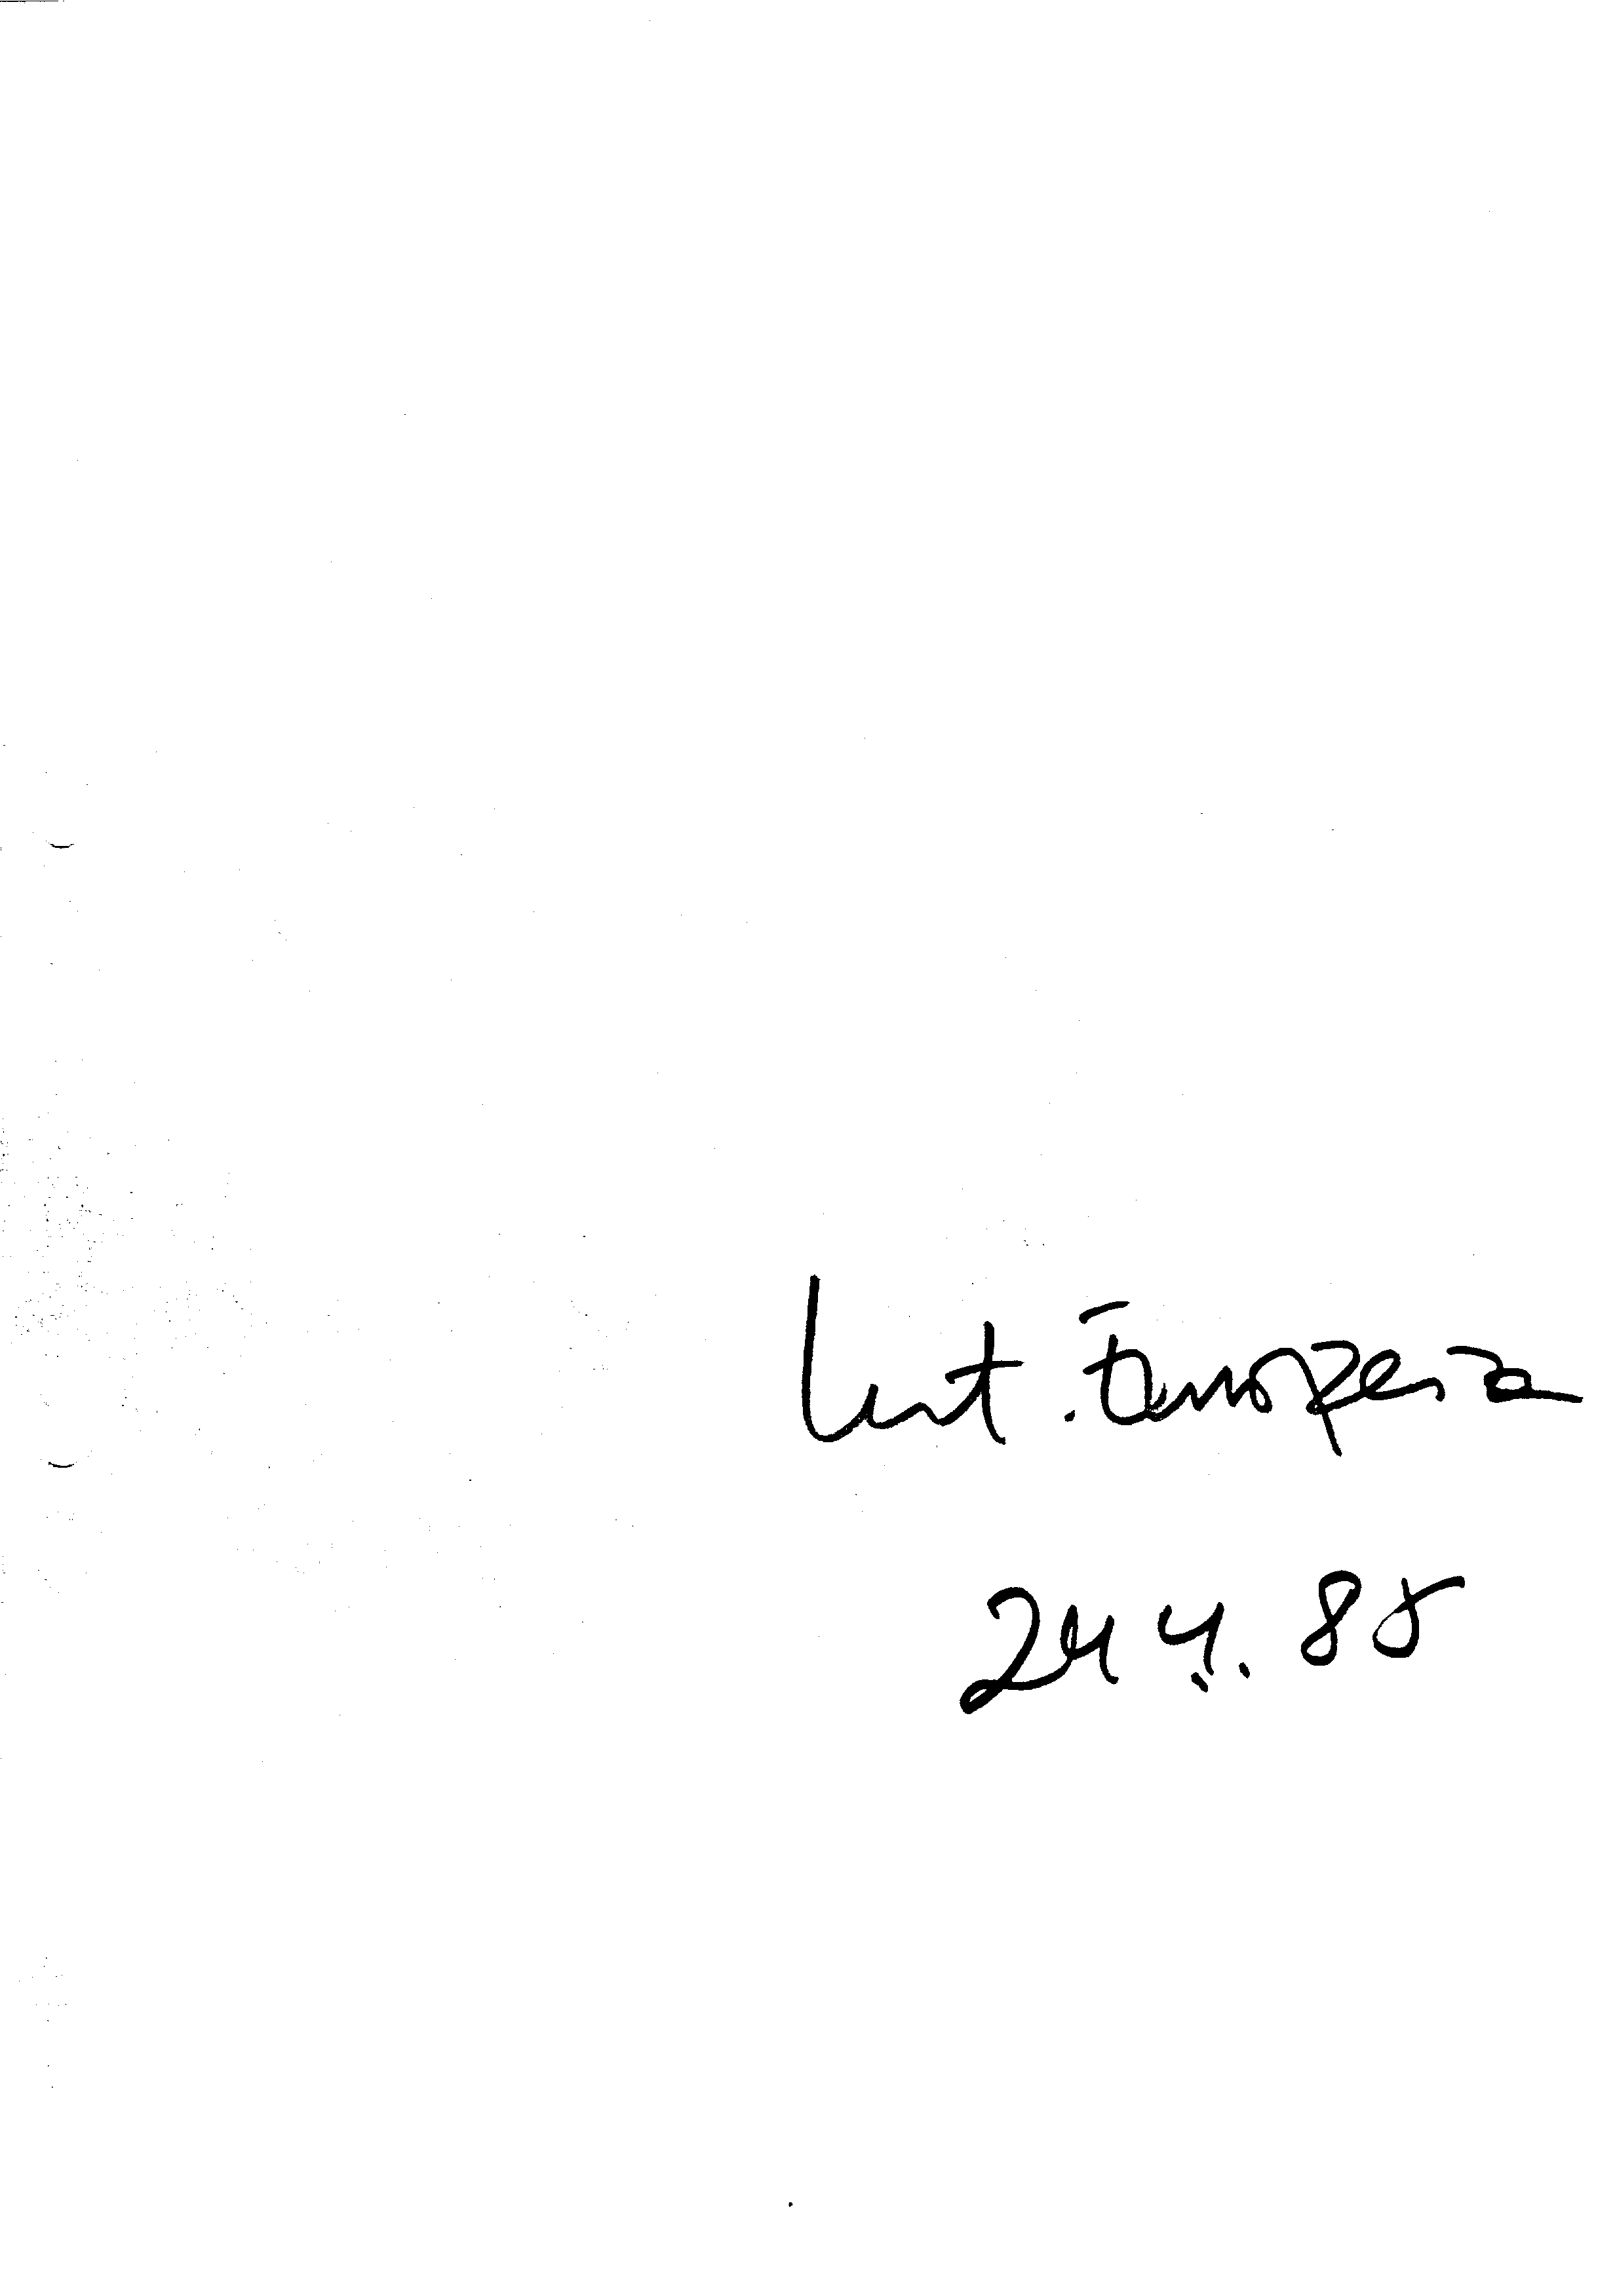 Int. Europera
24 4. 85